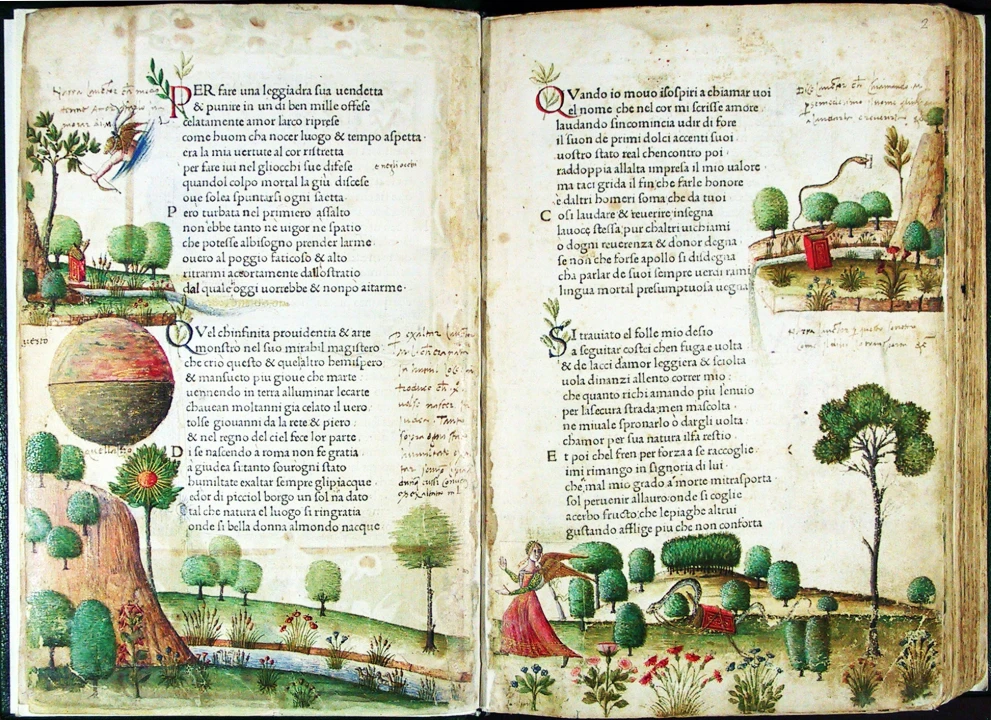 PER fare una leggiadra sua uendetta
& punire in un di ben mille offese
celatamente amor larco riprese
come huom cha nocer luogo & tempo aspetta.
era la mia uertute al cor ristretta
per fare iui nel gliocchi sue difese
e negli occhi
quandol colpo mortal la giu discese
oue solea spuntarsi ogni saetta.
Pero turbata nel primiero assalto
non ebbe tanto ne uigor ne spatio
che potesse albisogno prender larme
ouero al poggio faticoso & alto
ritrarmi accortamente dallostratio
dal quale oggi uorrebbe & nonpo aitarme.
QVel chinfinita prouidentia & arte
monstro nel suo mirabil magistero
che crio questo & quelaltro hemispero
& mansueto piu gioue che marte
uennendo in terra alluminar lecarte
chauean moltanni gia celato il uero
tolse giouanni da la rete & piero
& nel regno del ciel fece lor parte.
Di se nascendo a roma non fe gratia
a giudea si tanto sourogni stato
humiltate exaltar sempre glipiacque
edor di picciol borgo un sol na dato
tal che natura el luogo si ringratia
onde si bella donna almondo nacque
2
QVando io mouo isospiri a chiamar uoi
el nome che nel cor mi scrisse amore
laudando sincomincia udir di fore
il suon de primi dolci accenti suoi
uostro stato real chencontro poi
raddoppia allalta impresa il mio ualore
ma taci grida il fin che farle honore
e daltri homeri soma che da tuoi
Cosi laudare & reuerire insegna
lauoce stessa pur chaltri uichiami
o dogni reuerenza & donor degna
se non che forse apollo si disdegna
cha parlar de suoi sempre uerdi rami
lingua mortal presumptuosa uegna
SI trauiato el folle mio desio
a seguitar costei chen fuga e uolta
& de lacci damor leggiera & sciolta
uola dinanzi allento correr mio
che quanto richiamando piu lenuio
per lasecura strada men mascolta
ne miuale spronarlo o dargli uolta
chamor per sua natura ilfa restio
Et poi chel fren per forza a se raccoglie
imi rimango in signoria di lui
che mal mio grado a morte mitrasporta
sol peruenir allauro onde si coglie
acerbo fructo che lepiaghe altrui
gustando afflige piu che non conforta